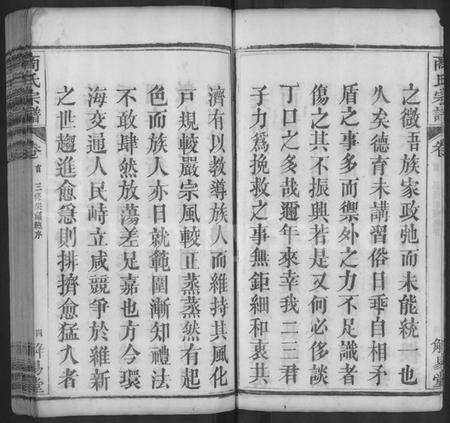 商氏宗譜
卷
之微吾族家政弛而未能統一也
久矣德育未講習俗日乖自相矛
盾之事多而禦外之力不足識者
傷之其不振興若是又何必侈談
丁口之多哉邇年來幸我二三君
子力爲挽救之事無鉅細和衷共
解易堂
商氏宗譜
卷首
三修宗譜總序
濟有以教導族人而維持其風化
戶規較嚴宗風較正蒸蒸然有起
色而族人亦日就範圍漸知禮法
不敢肆然放蕩差足嘉也方今環
海交通人民峙立咸競爭於維新
之世趨進愈急則排擠愈猛久者
四
解易堂